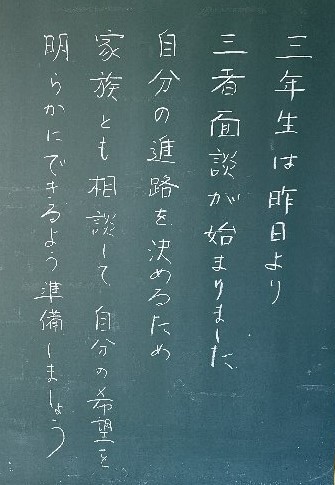 三年生は昨日より
三者面談が始まりました
自分の進路を決めるため
家族とも相談して自分の希望を
明らかにできるよう準備しましょう